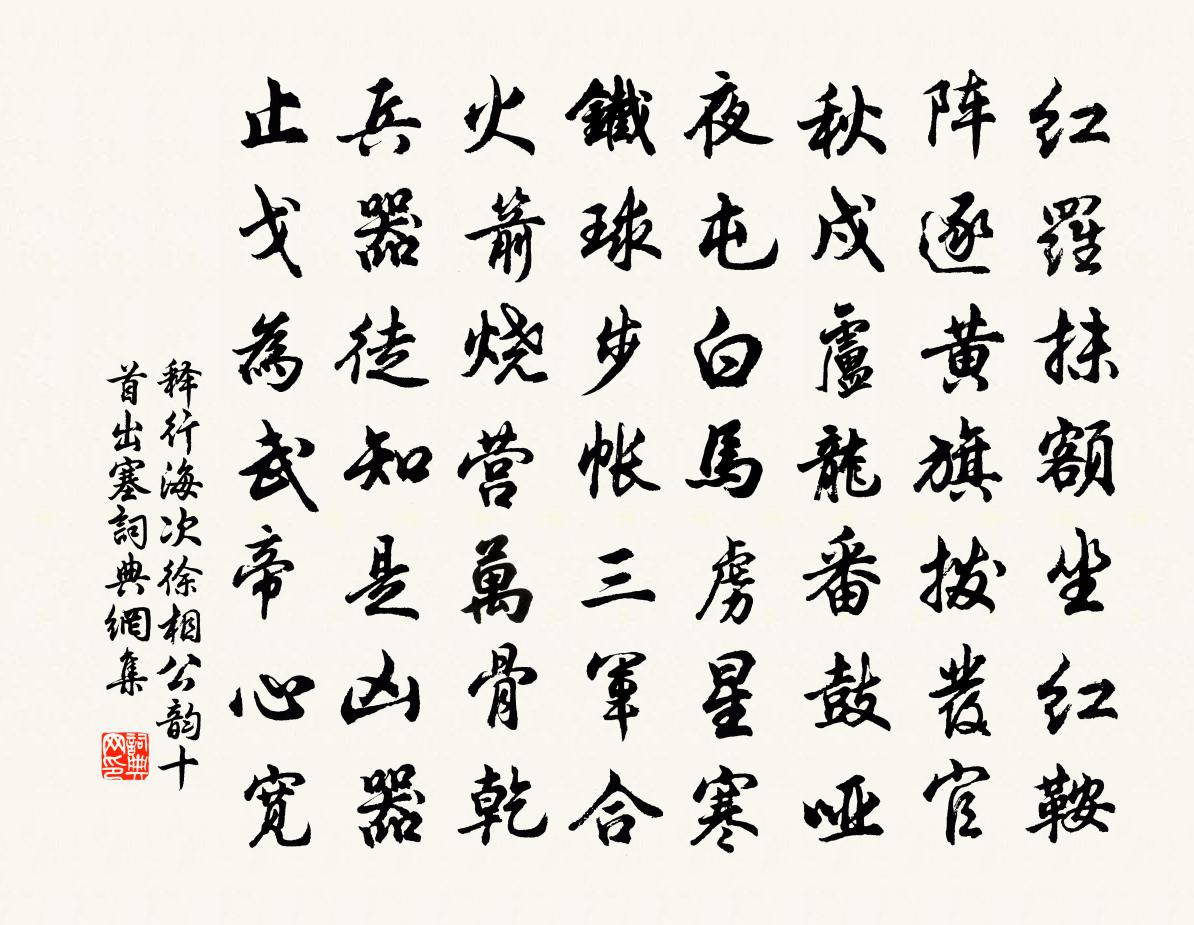 红羅抹额坐红鞍
阵逐黄旗拨发官
秋戍盧龍番鼓哑
夜屯白馬虏星寒
鐵球步帐三军合
火箭烧营萬骨乾
兵器徒知是凶器
止戈為武帝心宽
释行海次徐相公韵十
首出塞詞典網集
詞典网印